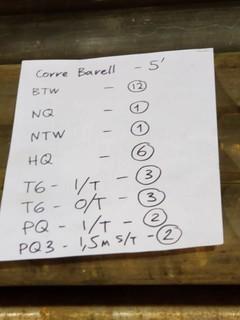 Corre Barell - 5'
BTW - 12
NQ - 1
NTW - 1
HQ - 6
T6 - 1/T - 3
T6 - 0/T - 3
PQ - 1/T - 2
PQ3 - 1,5m S/T - 2